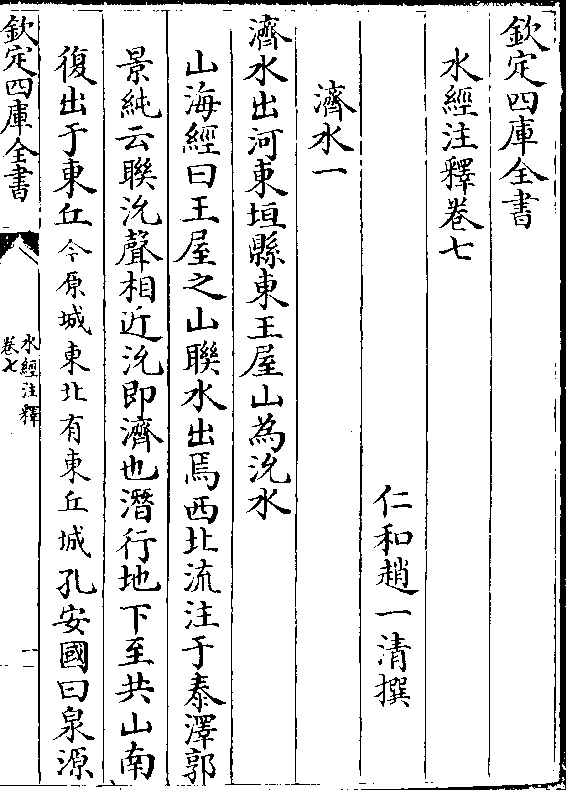 欽定四庫全書
水經注釋卷七
仁和趙一清撰
濟水一
濟水出河東垣縣東王屋山為沇水
山海經曰王屋之山聮水出焉西北流注于泰澤郭
景純云聮沇聲相近沇即濟也潛行地下至共山南
復出于東丘今原城東北有東丘城孔安國曰泉源
欽定四庫全書
水經注釋
卷七
一